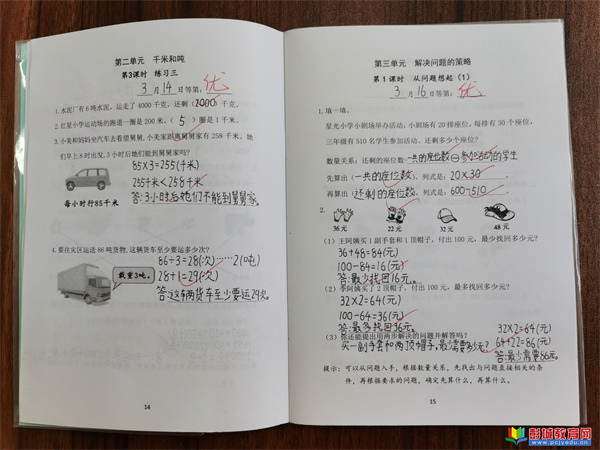 第二单元 千米和吨
第3课时 练习三
3月14日等第: 优
1.水泥厂有6吨水泥,运走了4000千克,还剩(2000)千克。
2.红星小学运动场的跑道一圈是200米,(5)圈是1千米。
3.小美和妈妈坐汽车去看望舅舅,小美家距离舅舅家有258千米,她
们早上8时出发,3小时后她们能到舅舅家吗?
85×3=255(千米)
255千米<258千米
答:3小时后她们不能到舅舅家。
每小时行85千米
4.要往灾区运送86吨货物,这辆货车至少要运多少次?
86÷3=28(次)……2(吨)
28+1=29(次)
载重3吨。
答:这辆货车至少要运29次。
14
第三单元 解决问题的策略
第1课时 从问题想起(1)
3月16日等第: 优
1.填一填。
星光小学小剧场举办活动,小剧场有20排座位,每排有30个座位,
三年级有510名学生参加活动,还剩多少个座位?
数量关系:还剩的座位数=一共的座位数-参加活动的学生
先算出(一共的座位数),列式是:20×30
再算出(还剩的座位数),列式是:600-510
2.
36元 22元 32元 48元
(1)王阿姨买1副手套和1顶帽子,付出100元,最少找回多少元?
36+48=84(元)
100-84=16(元)
答:最少找回16元。
(2)李阿姨买了2顶帽子,付出100元,最多找回多少元?
32×2=64(元)
100-64=36(元)
答:最多找回36元。
(3)你还能提出用两步解决的问题并解答吗?
买一副手套和两顶帽子,最少需要多少元?
32×2=64(元)
64+22=86(元)
答:最少需要86元。
提示:可以从问题入手,根据数量关系,先找出与问题直接相关的条
件,再根据要求的问题,确定先算什么,再算什么。
15
彭城教育网
www.pcjyedu.cn